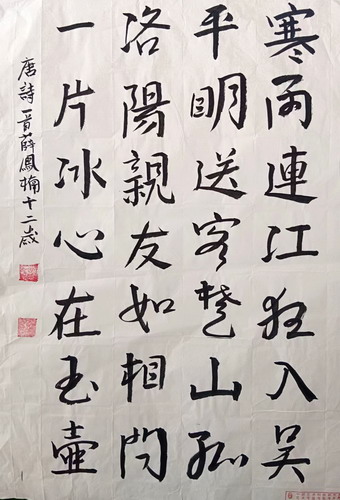 寒雨連江狂入吴
平明送客楚山孤
洛陽親友如相問
一片冰心在玉壺
唐詩一首薛鳳楠十二歲